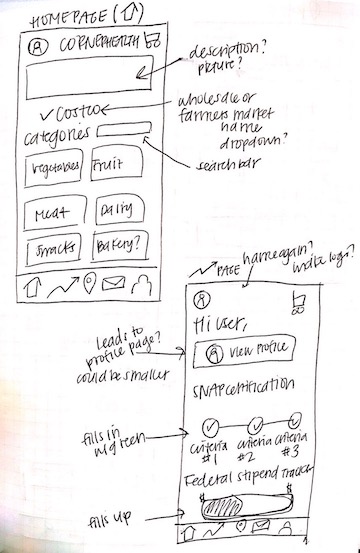 HOMEPAGE (
)
CORNERHEALTH
description?
picture?
✓ Costco
wholesale or
farmers market
name
dropdown?
categories
searchbar
vegetables
Fruit
Meat
Dairy
Snacks
Bakery?
PAGE
name again?
write logo?
Hi User,
leads to
profile page?
could be smaller
View Profile
SNAP certification
fills in
w/green
criteria
#1
criteria
#2
criteria
#3
Federal stipend Tracker
$
$
fills up